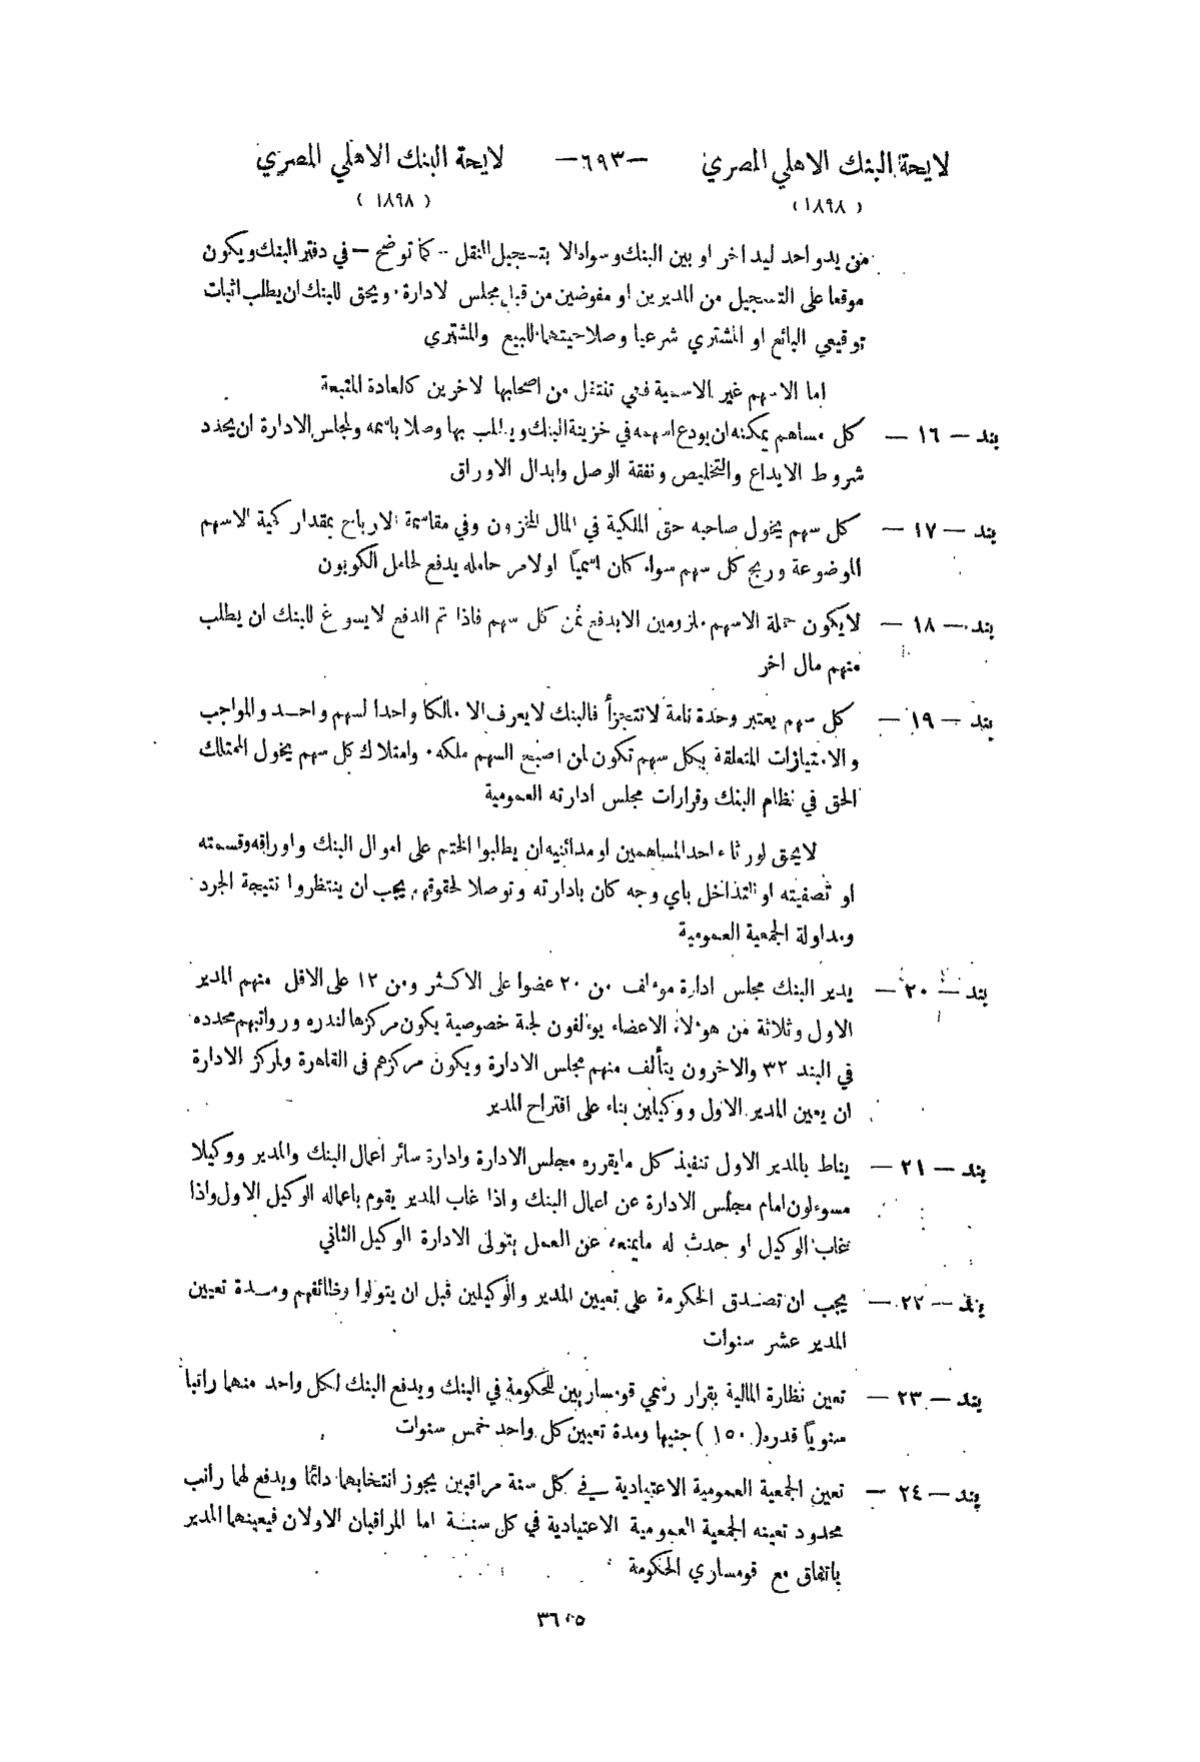 لايحة البنك الاهلي المصري —٦٩٣— لايحة البنك الاهلي المصري
(١٨٩٨) (١٨٩٨)
من يدو احد ليد اخر او بين البنك وسواه الا بتسجيل النقل - كما توضح — في دفتر البنك ويكون
موقعا على التسجيل من المديرين او مفوضين من قبل مجلس لادارة ويحق للبنك ان يطلب اثبات
توقيعي البائع او المشتري شرعيا وصلاحيتهما للبيع والمشترى
اما الاسهم غير الاسمية فهي تنتقل من اصحابها لاخرين كالعادة المتبعة
بند — ١٦ — كل مساهم يمكنه ان يودع اسهمه في خزينة البنك ويطلب بها وصلا باسمه ولمجلس الادارة ان يحدد
شروط الايداع والتخليص ونفقة الوصل وابدال الاوراق
بند — ١٧ — كل سهم يخول صاحبه حق الملكية في المال المخزون وفي مقاسمة الارباح بمقدار كمية الاسهم
الموضوعة وربح كل سهم سواء كان اسميًا او لامر حامله يدفع لحامل الكوبون
بند — ١٨ — لا يكون حملة الاسهم ملزومين الا بدفع ثمن كل سهم فاذا تم الدفع لا يسوغ للبنك ان يطلب
منهم مال اخر
بند — ١٩ — كل سهم يعتبر وحدة تامة لا تتجزأ فالبنك لا يعرف الا مالكا واحدا لسهم واحد والمواجب
والامتيازات المتعلقة بكل سهم تكون لمن اصبح السهم ملكه وامتلاك كل سهم يخول الممتلك
الحق في نظام البنك وقرارات مجلس ادارته العمومية
لا يحق لورثاء احد المساهمين او مدائنيه ان يطالبوا الختم على اموال البنك واوراقه وقسمته
او تصفيته او التداخل باي وجه كان بادارته وتوصلا لحقوقهم يجب ان ينتظروا نتيجة الجرد
ومداولة الجمعية العمومية
بند — ٢٠ — يدير البنك مجلس ادارة موءلف من ٢٠ عضوا على الاكثر ومن ١٢ على الاقل منهم المدير
الاول وثلاثة من هوءلاء الاعضاء يوءلفون لجنة خصوصية يكون مركزها لندره ورواتبهم محدده
في البند ٣٢ والاخرون يتألف منهم مجلس الادارة ويكون مركزهم فى القاهرة ولمركز الادارة
ان يعين المدير الاول ووكيلين بناء على اقتراح المدير
بند — ٢١ — يناط بالمدير الاول تنفيذ كل ما يقرره مجلس الادارة وادارة سائر اعمال البنك والمدير ووكيلا
مسوءلون امام مجلس الادارة عن اعمال البنك واذا غاب المدير يقوم باعماله الوكيل الاول واذا
غاب الوكيل او حدث له ما يمنعه عن العمل يتولى الادارة الوكيل الثاني
بند — ٢٢ — يجب ان تصدق الحكومة على تعيين المدير والوكيلين قبل ان يتولوا وظائفهم ومدة تعيين
المدير عشر سنوات
بند — ٢٣ — تعين نظارة المالية بقرار رسمي قومساريين للحكومة في البنك ويدفع البنك لكل واحد منهما راتبا
سنويًا قدره (١٥٠) جنيها ومدة تعيين كل واحد خمس سنوات
بند — ٢٤ — تعين الجمعية العمومية الاعتيادية في كل سنة مراقبين يجوز انتخابهما دائمًا ويدفع لهما راتب
محدود تعينه الجمعية العمومية الاعتيادية في كل سنة اما المراقبان الاولان فيعينهما المدير
باتفاق مع قومساري الحكومة